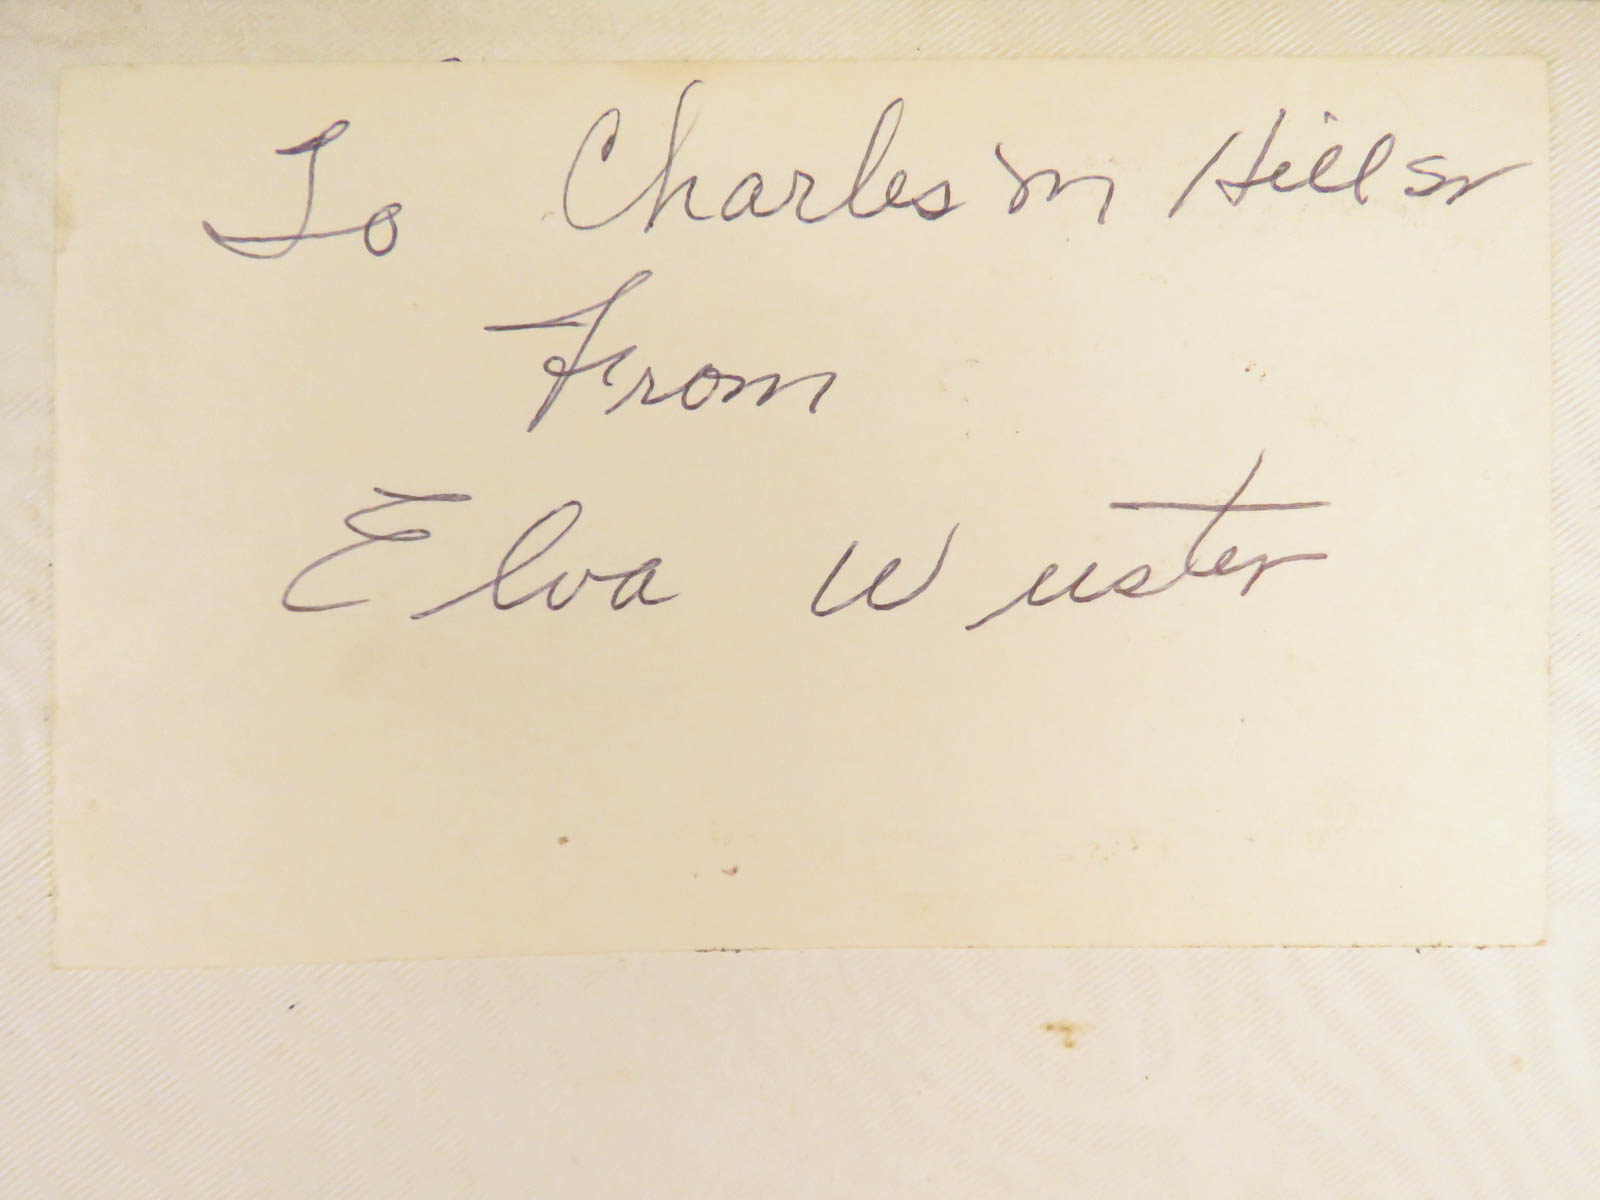 To Charles M Hill Sr
From
Elva Wuster